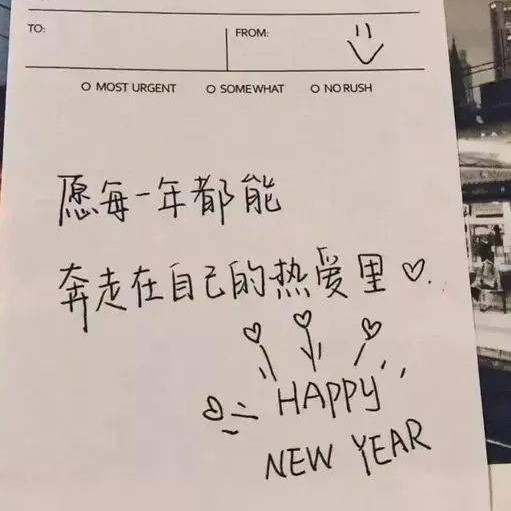 TO:
FROM:
O MOST URGENT O SOMEWHAT O NO RUSH
愿每一年都能
奔走在自己的热爱里♡.
HAPPY
NEW YEAR